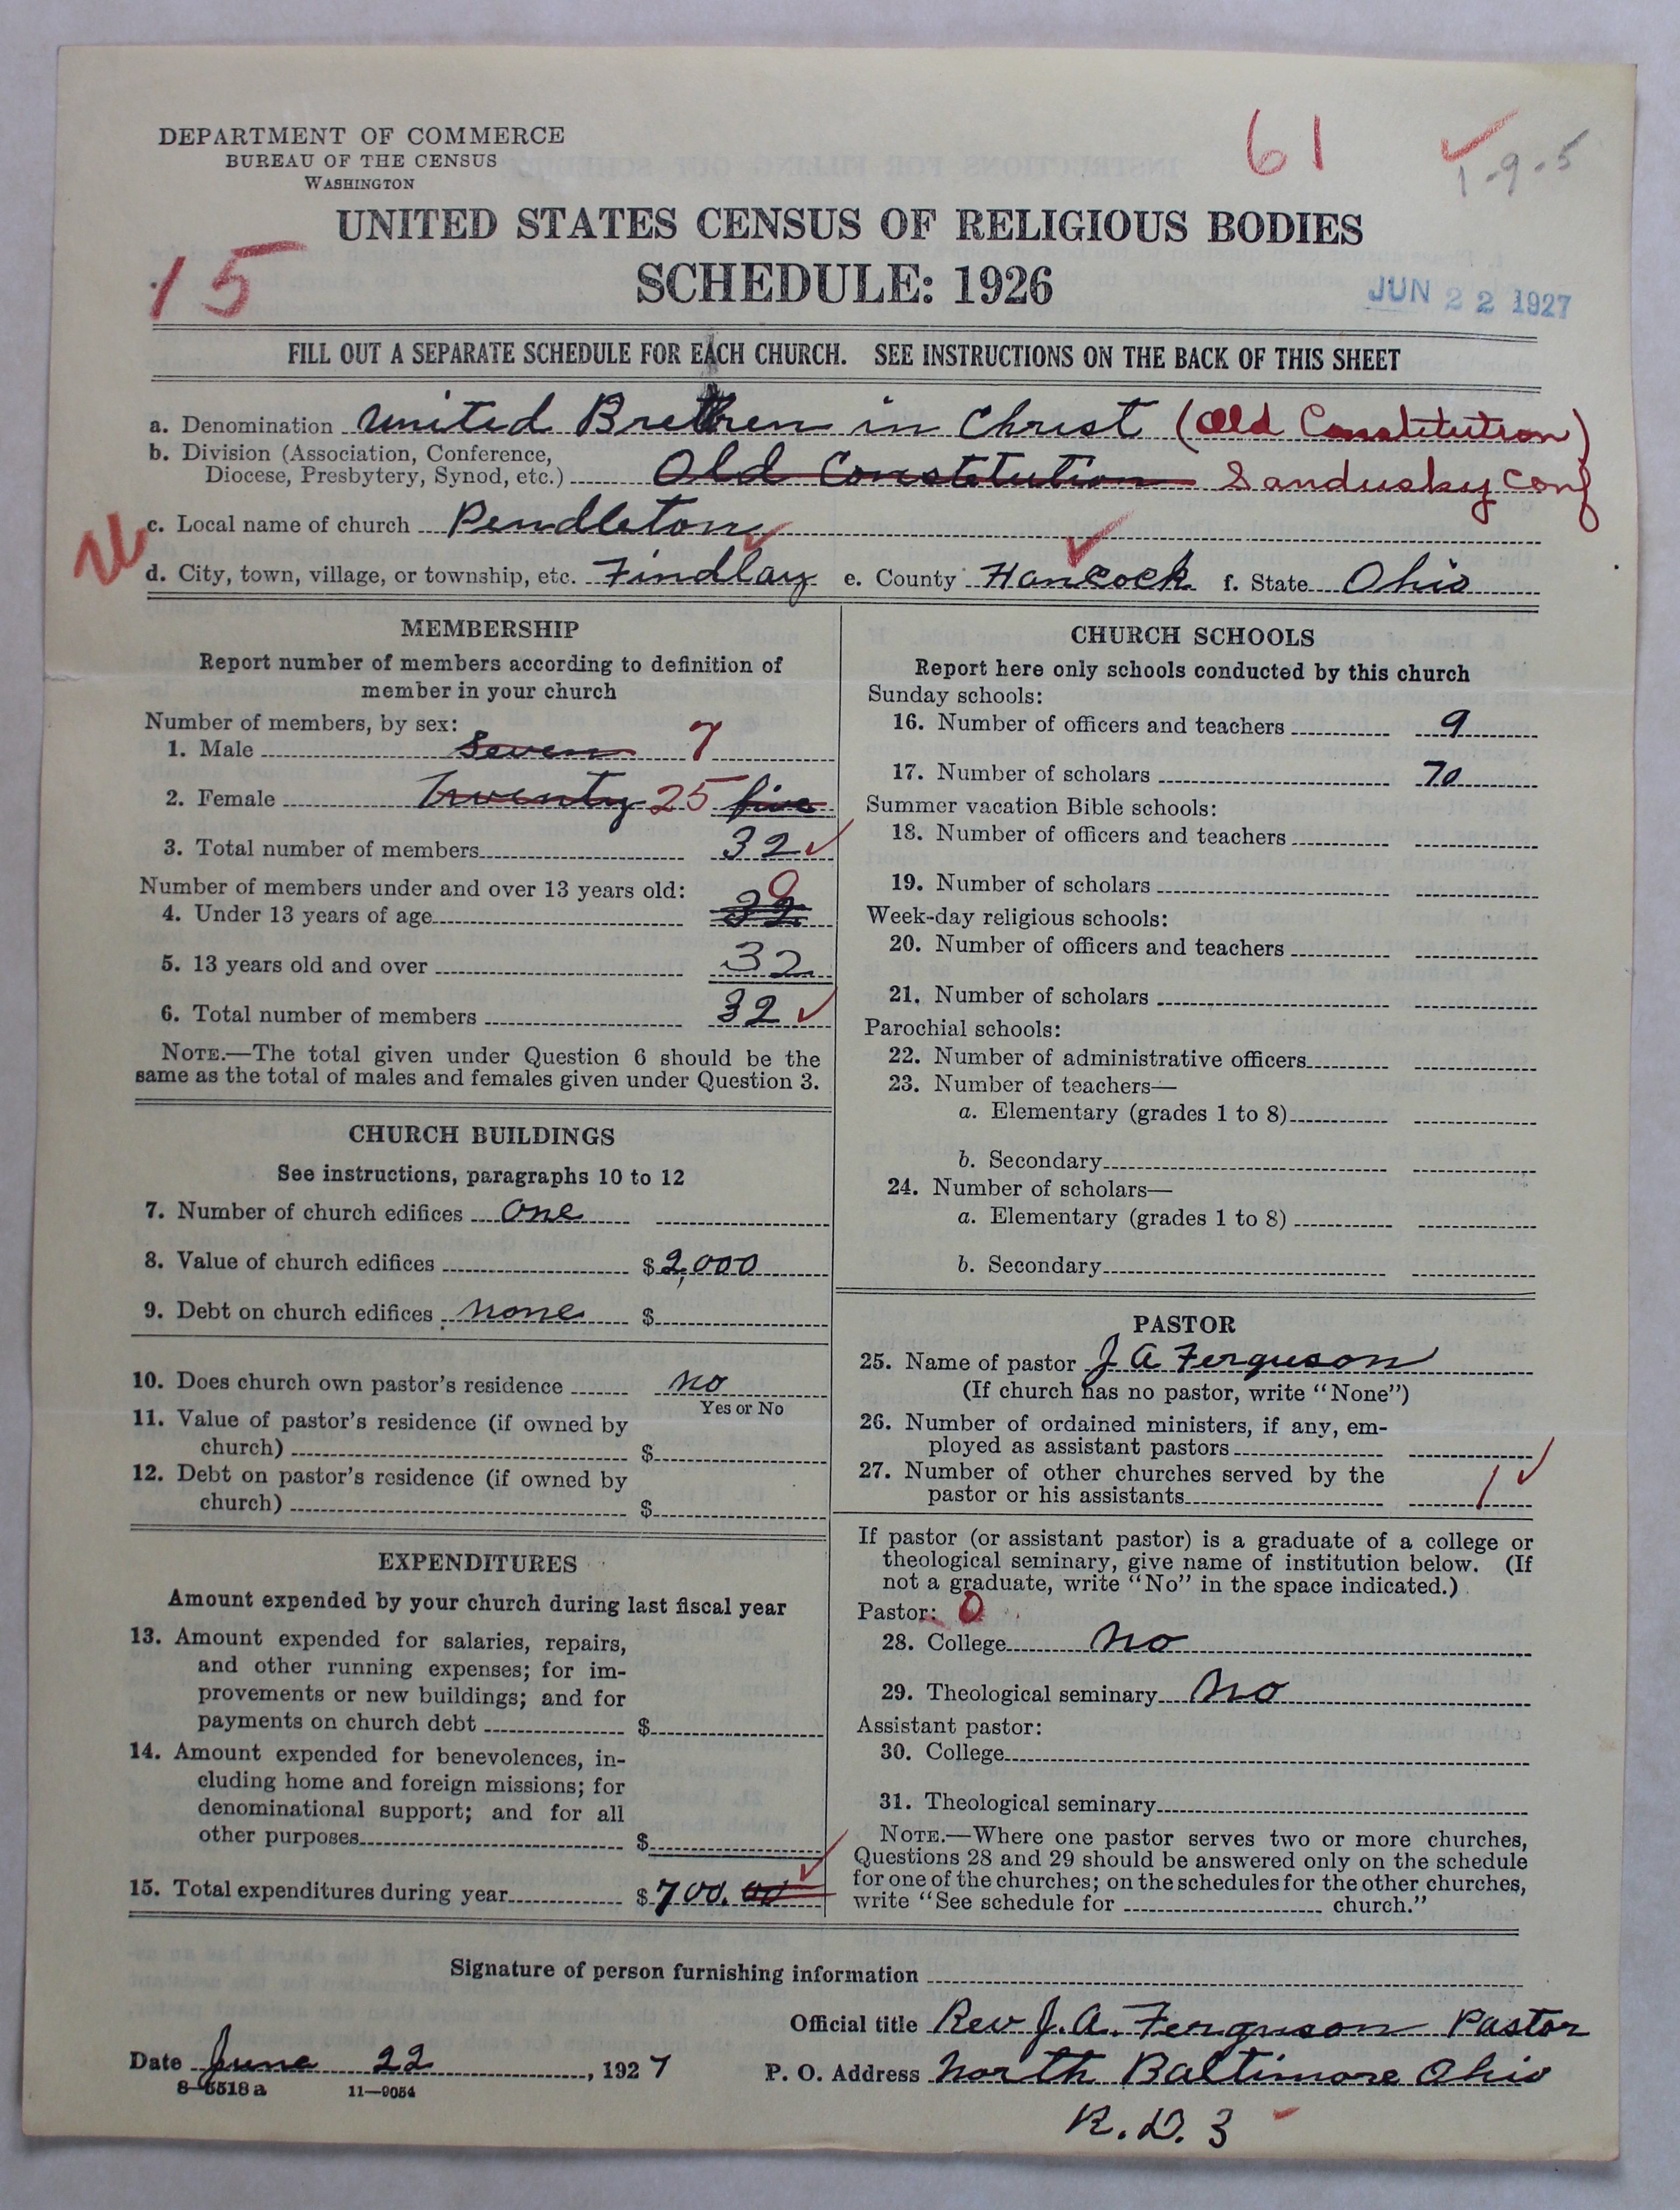 DEPARTMENT OF COMMERCE
BUREAU OF THE CENSUS
WASHINGTON
61
1-9-5
UNITED STATES CENSUS OF RELIGIOUS BODIES
15
SCHEDULE: 1926
JUN 22 1927
FILL OUT A SEPARATE SCHEDULE FOR EACH CHURCH. SEE INSTRUCTIONS ON THE BACK OF THIS SHEET
a. Denomination United Brethren in Christ (Old Constitution)
b. Division (Association, Conference,
Diocese, Presbytery, Synod, etc.) Old Constitution Sandusky Conf
c. Local name of church Pendleton
d. City, town, village, or township, etc. Findlay e. County Hancock f. State Ohio
MEMBERSHIP
Report number of members according to definition of
member in your church
Number of members, by sex:
1. Male Seven 7
2. Female Twenty 25 five
3. Total number of members 32
Number of members under and over 13 years old:
4. Under 13 years of age 32 0
5. 13 years old and over 32
6. Total number of members 32
NOTE.—The total given under Question 6 should be the
same as the total of males and females given under Question 3.
CHURCH BUILDINGS
See instructions, paragraphs 10 to 12
7. Number of church edifices one
8. Value of church edifices $2,000
9. Debt on church edifices none $
10. Does church own pastor's residence no
Yes or No
11. Value of pastor's residence (if owned by
church) $
12. Debt on pastor's residence (if owned by
church) $
EXPENDITURES
Amount expended by your church during last fiscal year
13. Amount expended for salaries, repairs,
and other running expenses; for im-
provements or new buildings; and for
payments on church debt $
14. Amount expended for benevolences, in-
cluding home and foreign missions; for
denominational support; and for all
other purposes $
15. Total expenditures during year $700.00
CHURCH SCHOOLS
Report here only schools conducted by this church
Sunday schools:
16. Number of officers and teachers 9
17. Number of scholars 70
Summer vacation Bible schools:
18. Number of officers and teachers
19. Number of scholars
Week-day religious schools:
20. Number of officers and teachers
21. Number of scholars
Parochial schools:
22. Number of administrative officers
23. Number of teachers—
a. Elementary (grades 1 to 8)
b. Secondary
24. Number of scholars—
a. Elementary (grades 1 to 8)
b. Secondary
PASTOR
25. Name of pastor J A Ferguson
(If church has no pastor, write "None")
26. Number of ordained ministers, if any, em-
ployed as assistant pastors
27. Number of other churches served by the
pastor or his assistants 1
If pastor (or assistant pastor) is a graduate of a college or
theological seminary, give name of institution below. (If
not a graduate, write "No" in the space indicated.)
Pastor: 0
28. College no
29. Theological seminary no
Assistant pastor:
30. College
31. Theological seminary
NOTE.—Where one pastor serves two or more churches,
Questions 28 and 29 should be answered only on the schedule
for one of the churches; on the schedules for the other churches,
write "See schedule for church."
Signature of person furnishing information
Official title Rev J. A. Ferguson Pastor
Date June 22, 1927 P. O. Address North Baltimore Ohio
8-5518a 11—9054
R. D. 3